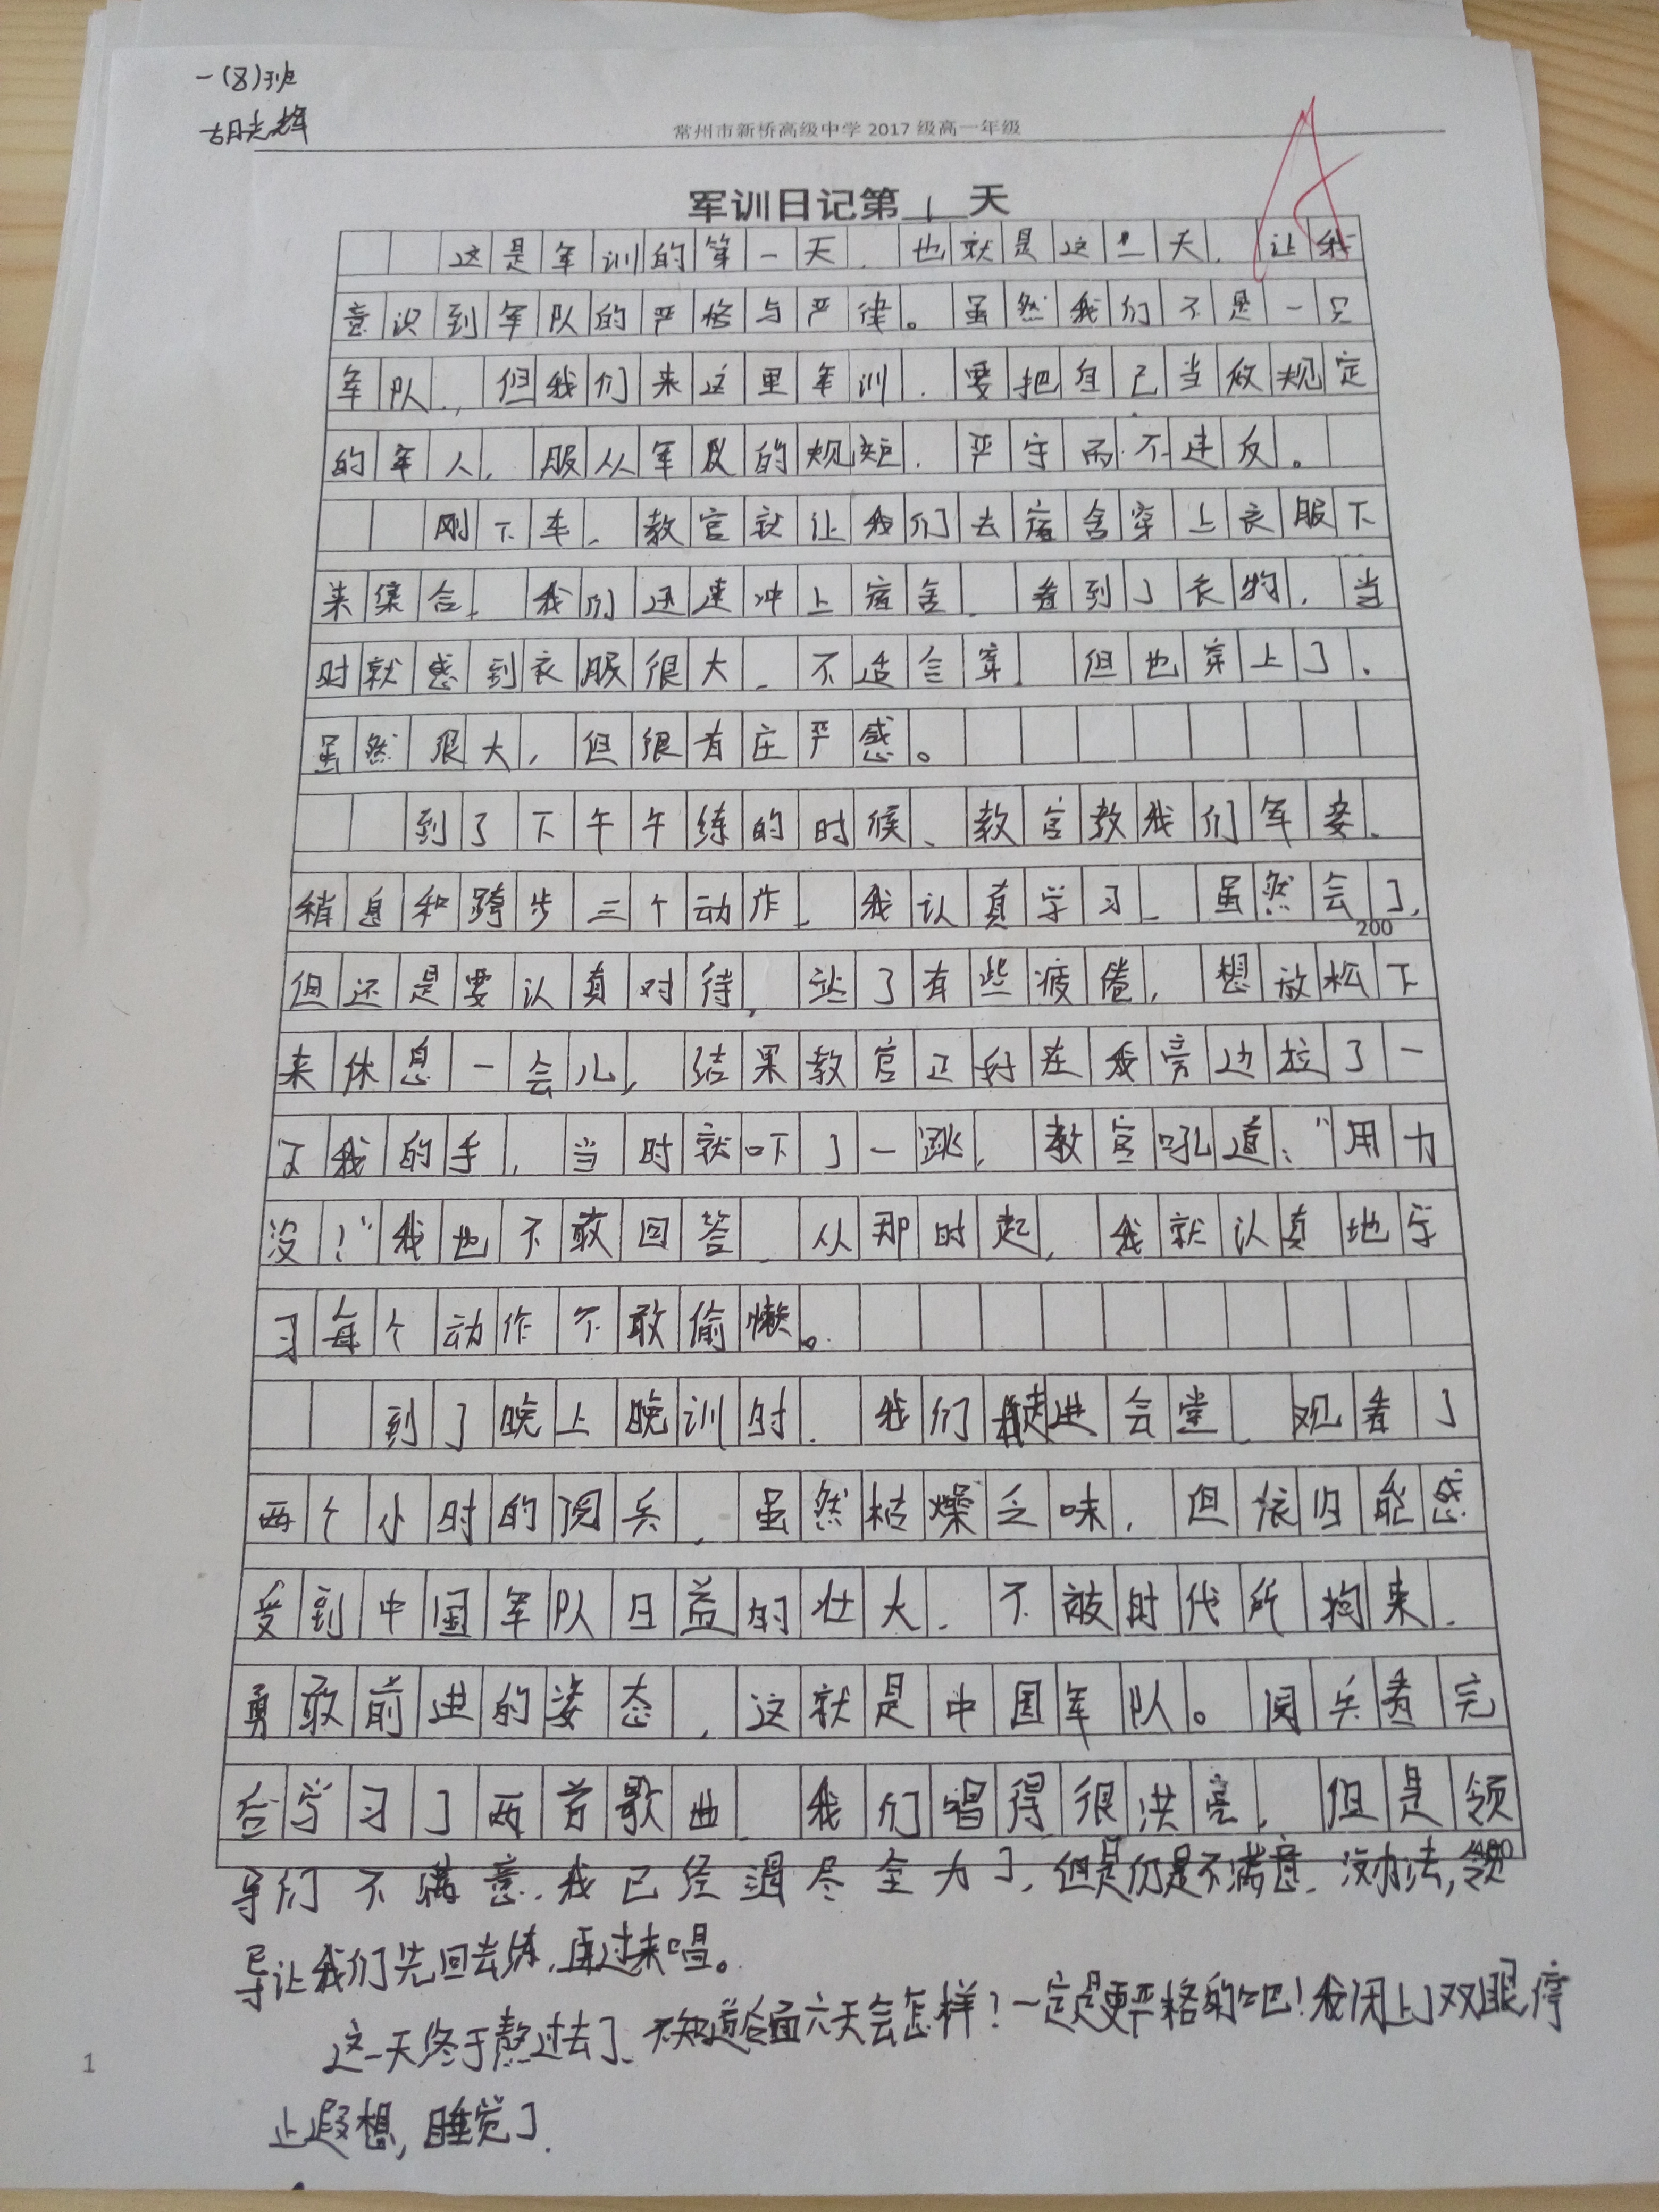 一(8)班
胡光辉
常州市新桥高级中学 2017 级高一年级
A
军训日记第1天
这是军训的第一天，也就是这一天，让我
意识到军队的严格与严律。虽然我们不是一只
军队，但我们来这里军训，要把自己当做规定
的军人，服从军队的规矩，严守而不违反。
刚下车，教官就让我们去宿舍穿上衣服下
来集合，我们迅速冲上宿舍，看到了衣物，当
时就感到衣服很大，不适合穿，但也穿上了。
虽然很大，但很有庄严感。
到了下午午练的时候、教官教我们军姿、
稍息和跨步三个动作，我认真学习，虽然会了，
200
但还是要认真对待，站了有些疲倦，想放松下
来休息一会儿，结果教官正好在我旁边拉了一
下我的手，当时就吓了一跳，教官吼道：“用力
没！”我也不敢回答，从那时起，我就认真地学
习每个动作不敢偷懒。
到了晚上晚训时，我们走进会堂，观看了
两个小时的阅兵，虽然枯燥乏味，但依旧能感
受到中国军队日益的壮大，不被时代所拘束，
勇敢前进的姿态，这就是中国军队。阅兵看完
后学习了两首歌曲，我们唱得很洪亮，但是领
400
导们不满意，我已经竭尽全力了，但是仍是不满意，没办法，领
导让我们先回去练，再过来唱。
这一天终于熬过去了、不知道后面六天会怎样？一定是更严格的吧！我闭上了双眼停
止遐想，睡觉了.
1